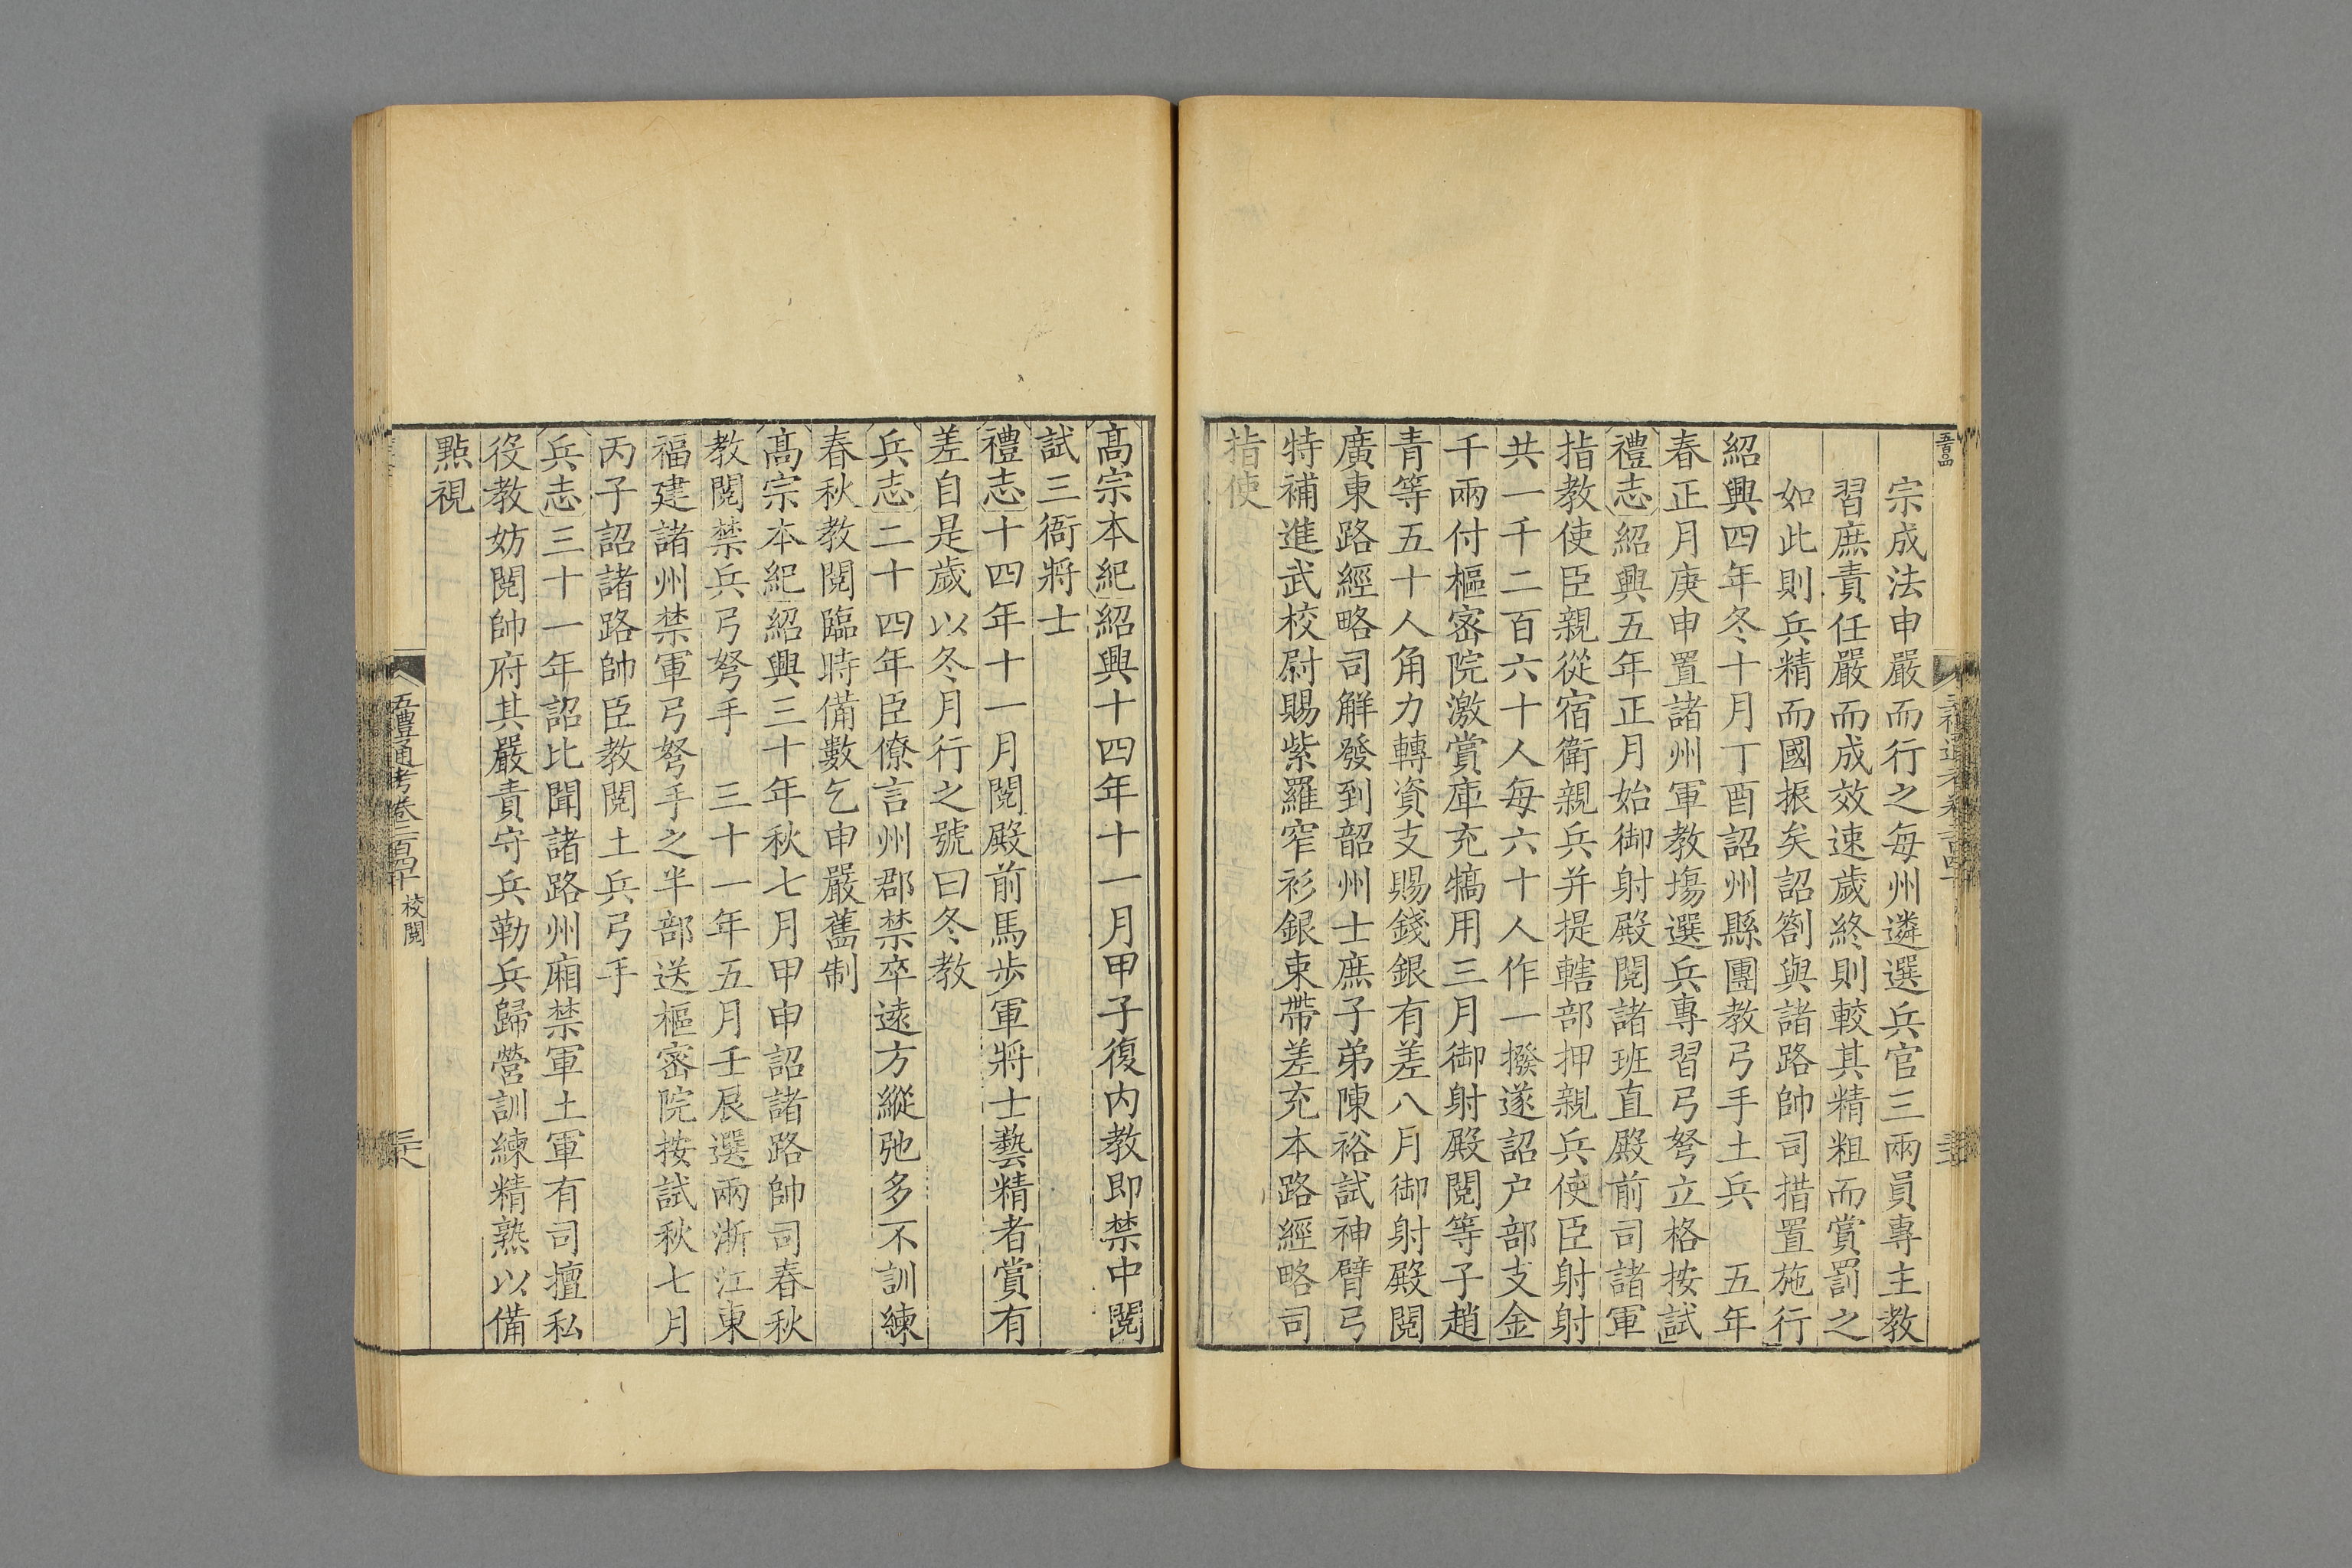 宗成法申嚴而行之每州遴選兵官三兩員專主教
習庶責任嚴而成效速歲終則較其精粗而賞罰之
如此則兵精而國振矣詔劄與諸路帥司措置施行
紹興四年冬十月丁酉詔州縣團教弓手土兵　五年
春正月庚申置諸州軍教塲選兵專習弓弩立格按試
禮志紹興五年正月始御射殿閱諸班直殿前司諸軍
指教使臣親從宿衛親兵并提轄部押親兵使臣射射
共一千二百六十人每六十人作一撥遂詔户部支金
千兩付樞密院激賞庫充犒用三月御射殿閱等子趙
青等五十人角力轉資支賜錢銀有差八月御射殿閱
廣東路經略司解發到韶州士庶子弟陳裕試神臂弓
特補進武校尉賜紫羅窄衫銀束帶差充本路經略司
指使
高宗本紀紹興十四年十一月甲子復内教即禁中閱
試三衙將士
禮志十四年十一月閱殿前馬步軍將士藝精者賞有
差自是歲以冬月行之號曰冬教
兵志二十四年臣僚言州郡禁卒遠方縱弛多不訓練
春秋教閱臨時備數乞申嚴舊制
高宗本紀紹興三十年秋七月甲申詔諸路帥司春秋
教閱禁兵弓弩手　三十一年五月壬辰選兩淛江東
福建諸州禁軍弓弩手之半部送樞密院按試秋七月
丙子詔諸路帥臣教閱土兵弓手
兵志三十一年詔比聞諸路州廂禁軍土軍有司擅私
役教妨閱帥府其嚴責守兵勒兵歸營訓練精熟以備
點視
五禮通考卷二百四十 校閱